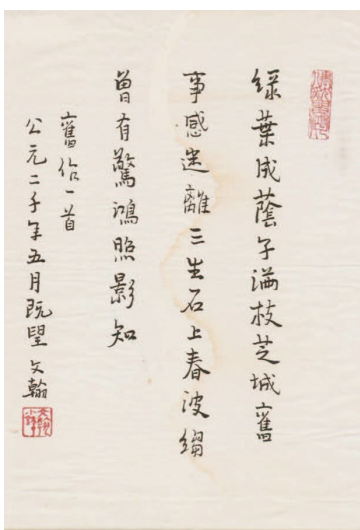 綠葉成蔭子滿枝芝城舊
事感迷離三生石上春波縐
曾有驚鴻照影知
舊作一首
公元二千年五月既望文翰